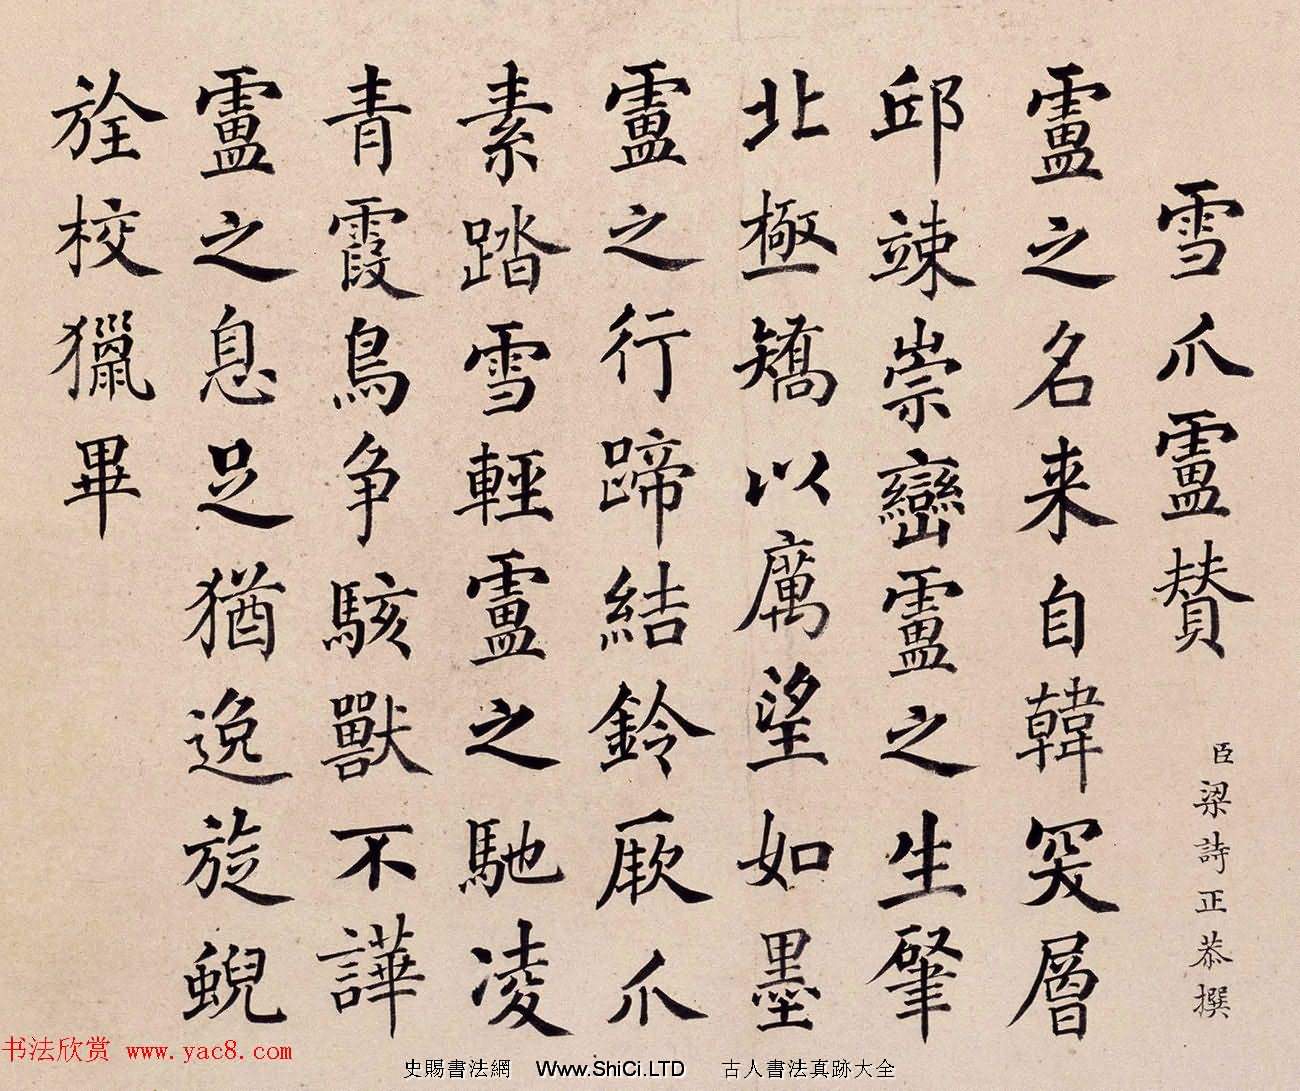 雪爪盧赞
臣梁詩正恭撰
盧之名来自韓突層
邱竦崇巒盧之生肇
北極矯以厲望如墨
盧之行蹄結鈴厥爪
素踏雪輕盧之馳凌
青霞鳥争駭獸不譁
盧之息足猶逸旋蜺
旌校獵畢
书法欣赏 www.yac8.com
史賜書法網 Www.ShiCi.LTD 古人書法真跡大全